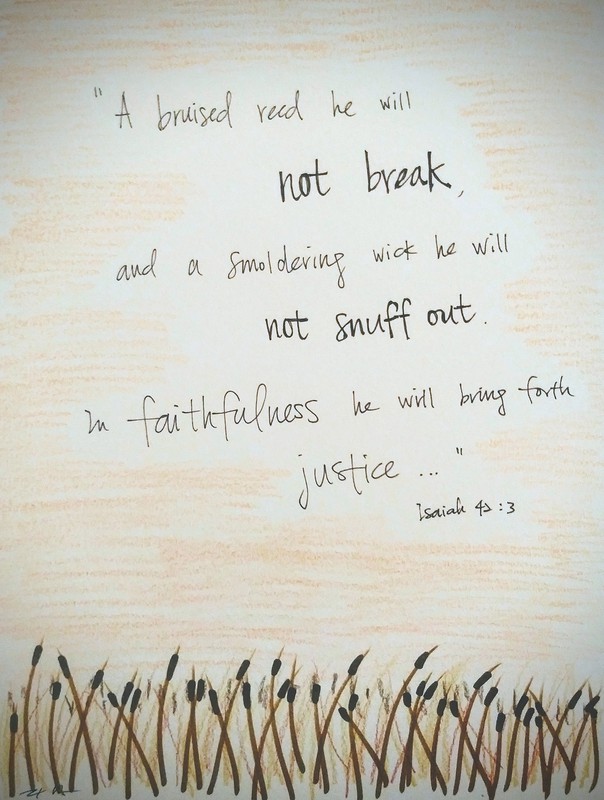 "A bruised reed he will
not break,
and a smoldering wick he will
not snuff out.
In faithfulness he will bring forth
justice ..."
Isaiah 42:3